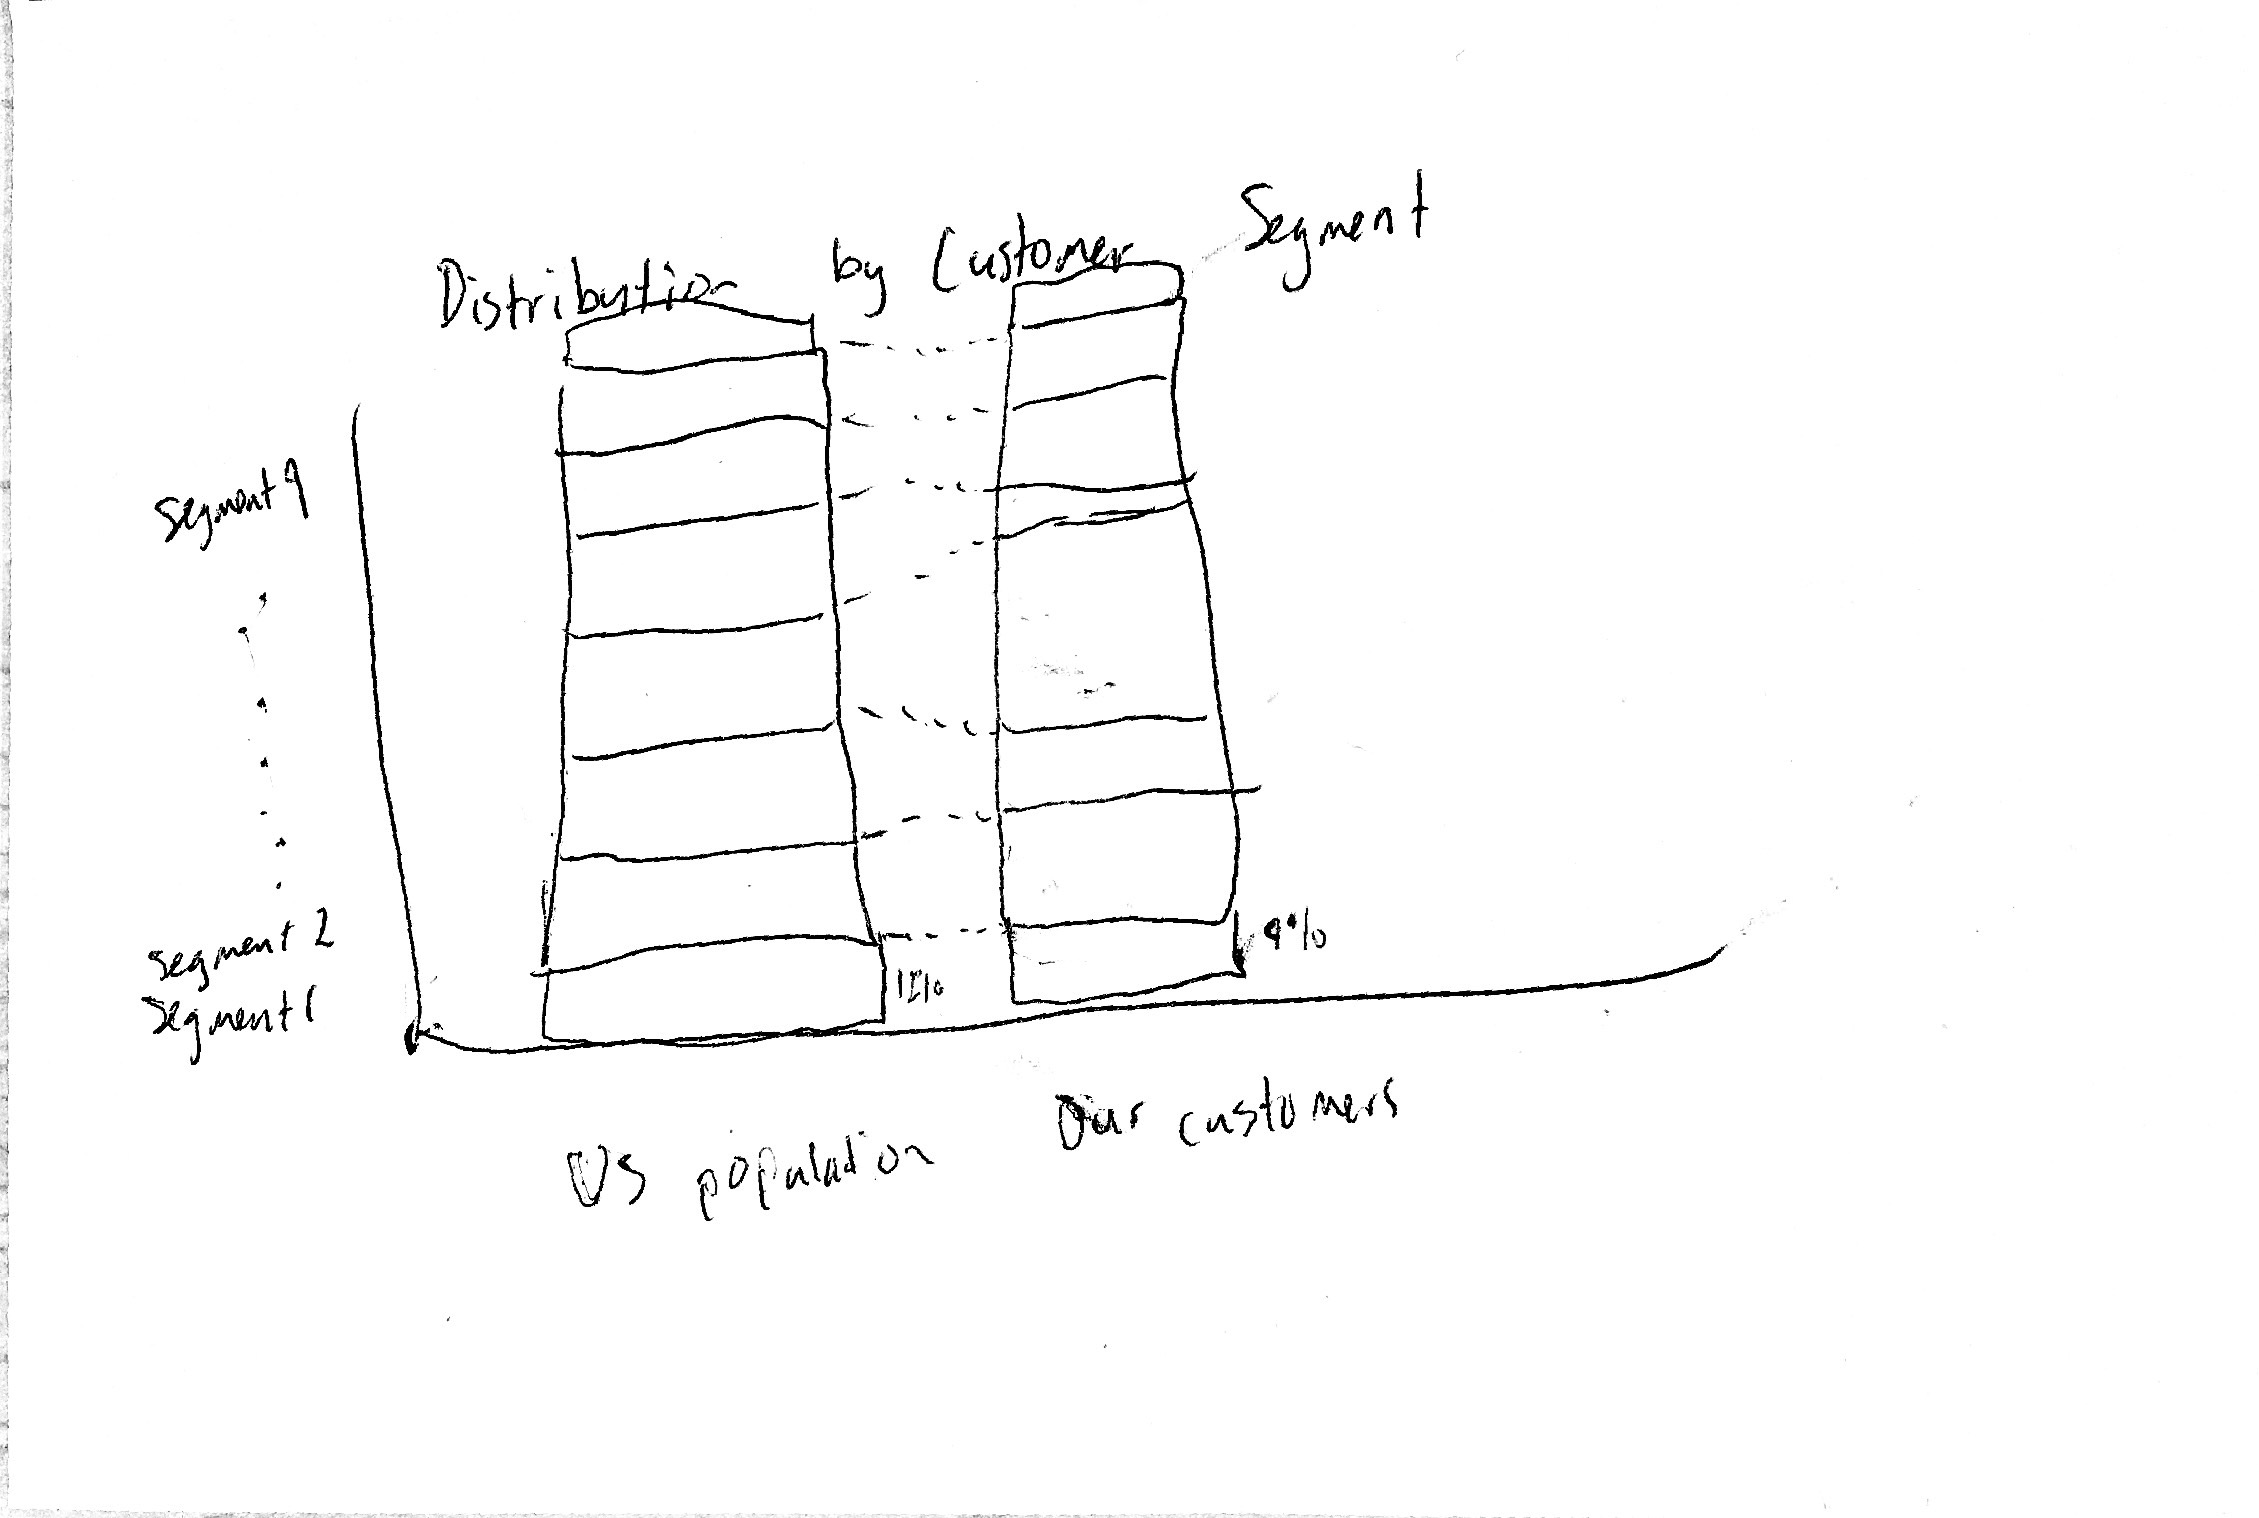 Distribution by Customer Segment
Segment 9
Segment 2
Segment 1
9%
US population
Our customers